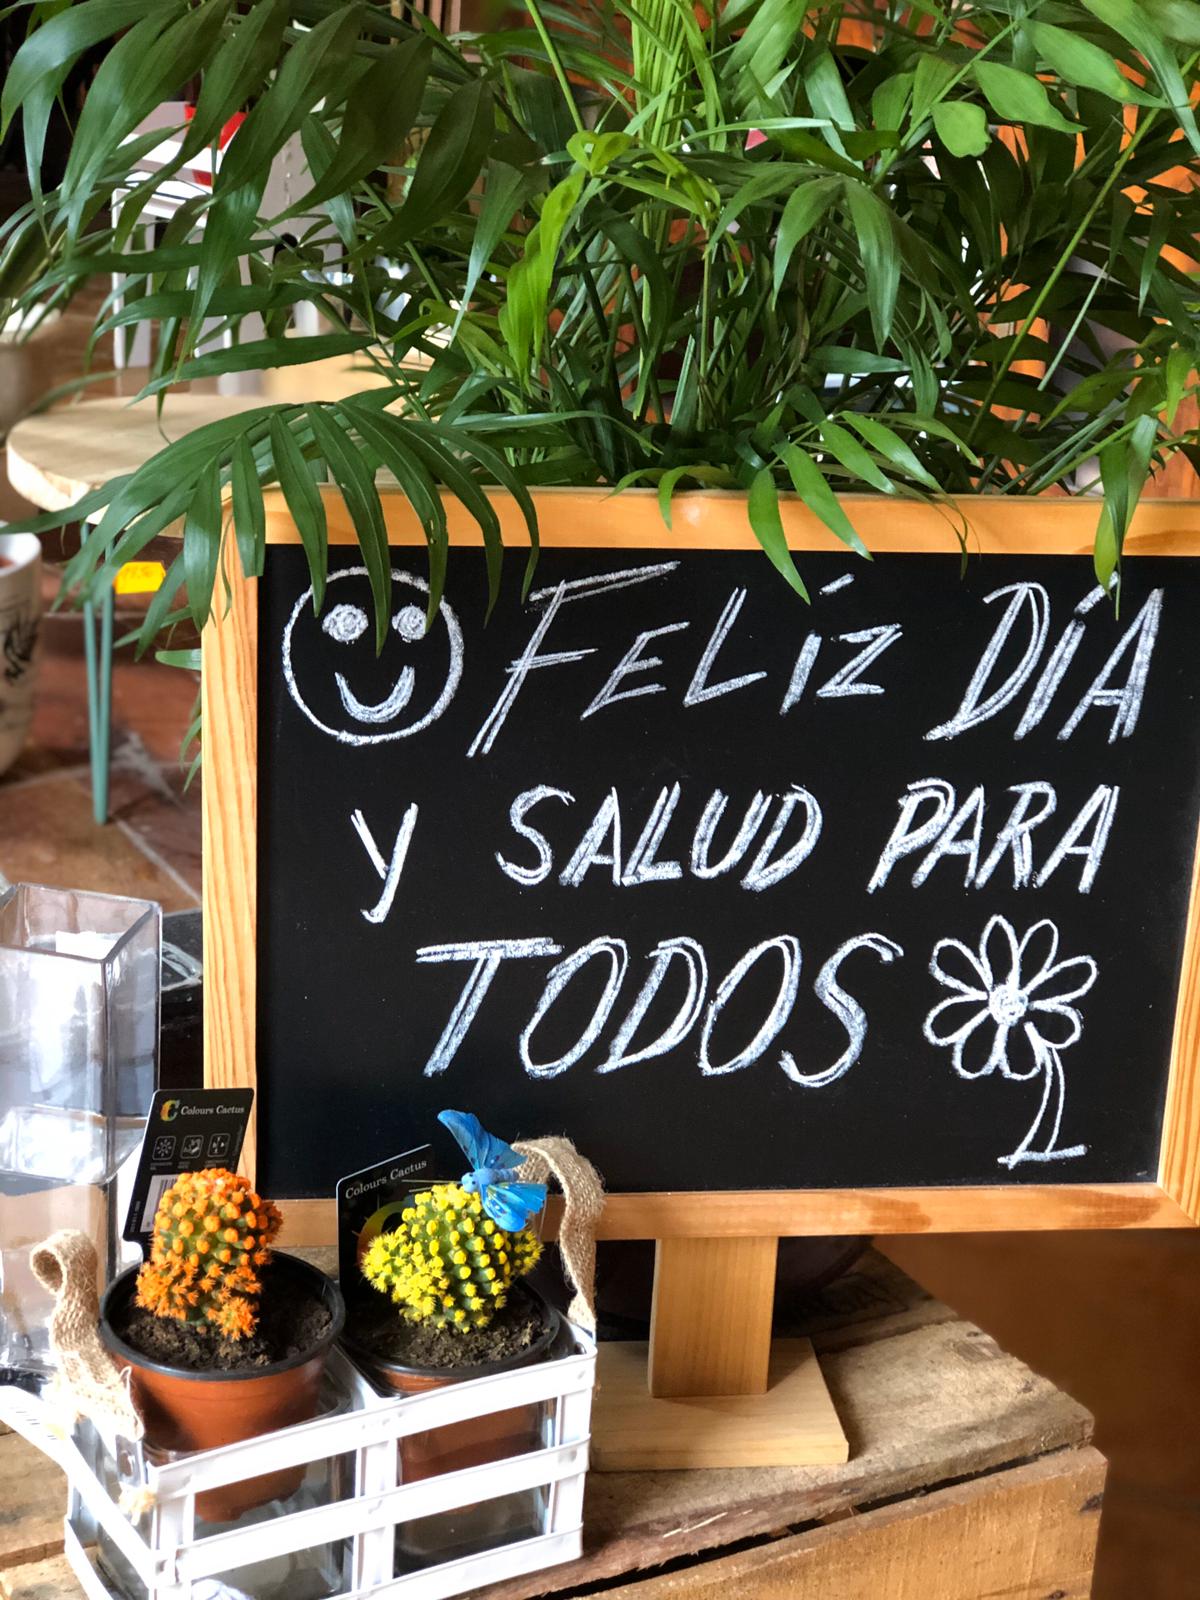 FELÍZ DÍA
y SALUD PARA
TODOS
Colours Cactus
Colours Cactus